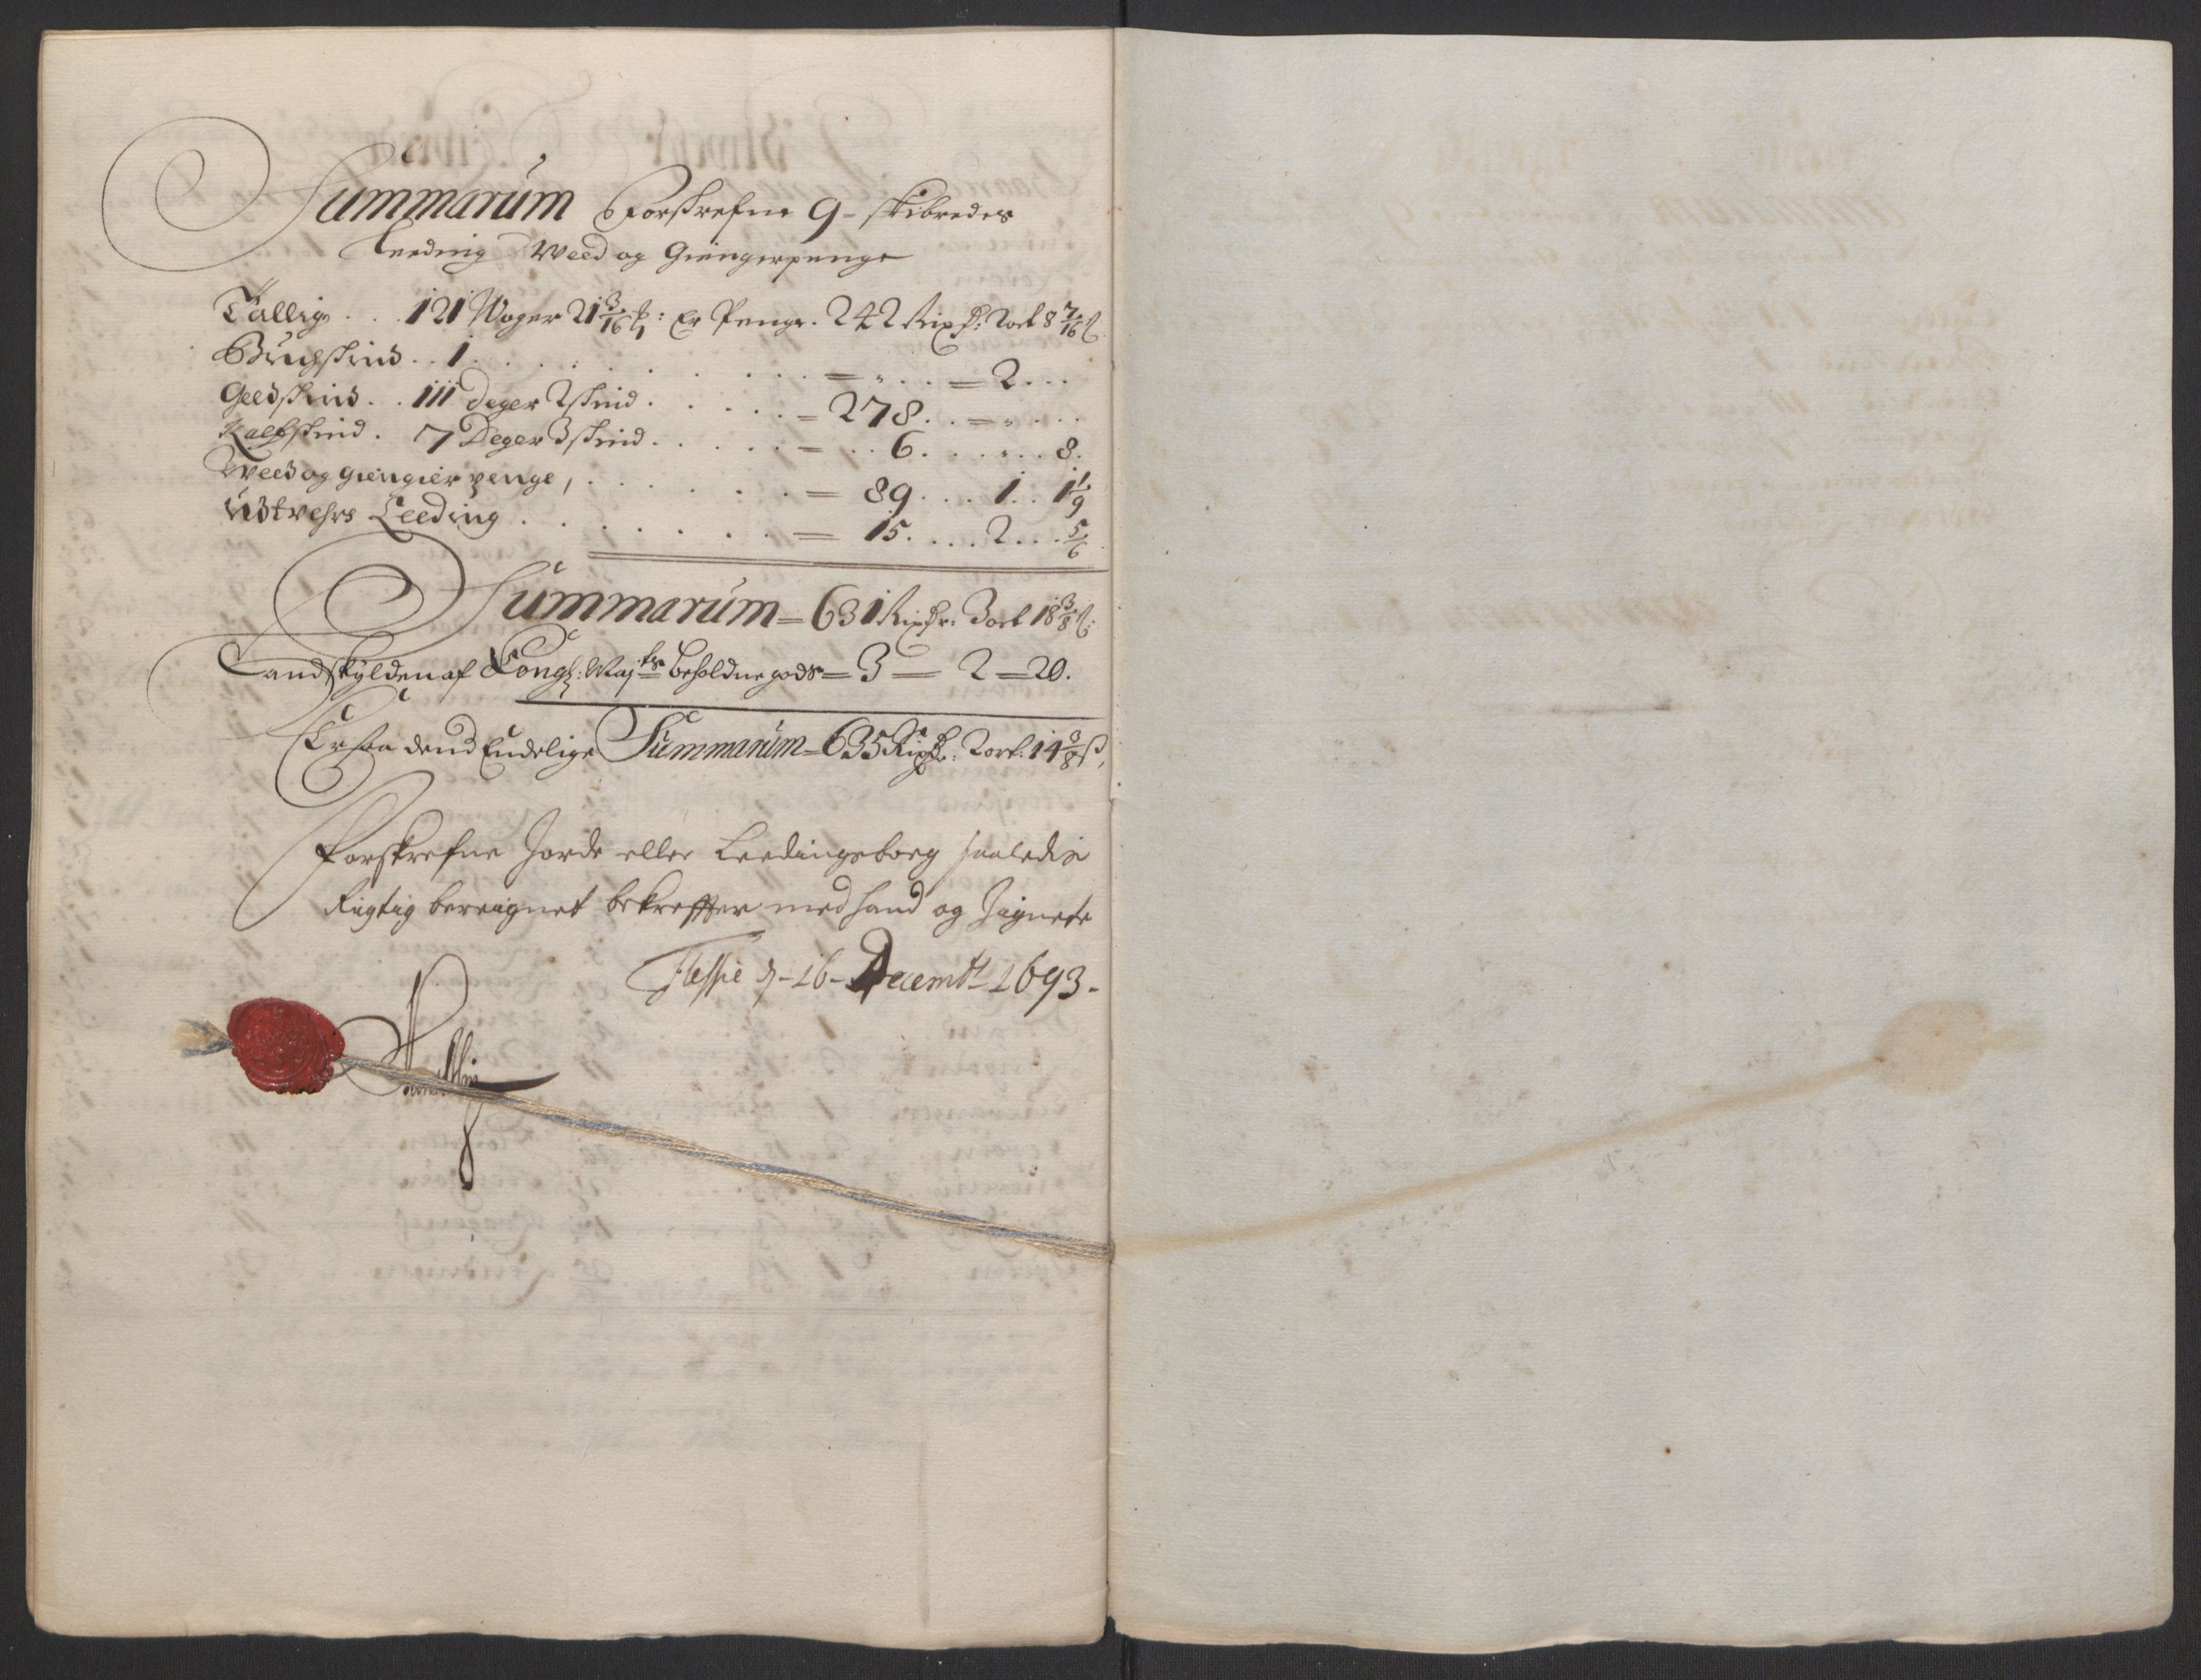 Summarum Forskrefne 9 - skibredes
Leeding Weed og Giengerpenge
Tallig . . . 121 Woger 21 3/16 ℔: Er Penge. 242 Rixdr: 2 ort 8 7/16 ß
Buchskind . . 1 . . . . . = „ . . = 2 . . .
Geedskind . . 111 Deger 2 skind . . . . = 278 . . = „ . . .
Kalfskind . 7 Deger 3 skind . . . . = . . 6 . . . „ . . . 8.
Weed og Giengier penge, . . . . . = 89 . . . 1 . . 1 1/9
Ustvehrs Leeding . . . . . . = 15 . . . . 2 . . . 5/6
Summarum = 631 Rixdr. 3 ort 18 3/8 ß:
Landskylden af Kongl: Maj:ts beholdne gods = 3 = 2 = 20.
Er saa dend Endelige Summarum = 635 Rixdr: 2 ort. 14 3/8 ß,
Forskrefne Jorde eller Leedingsborg saaledis
Rigtig bereignet bekreffter med haand og Zignete
Flessie d - 16 - Decembr 1693 -